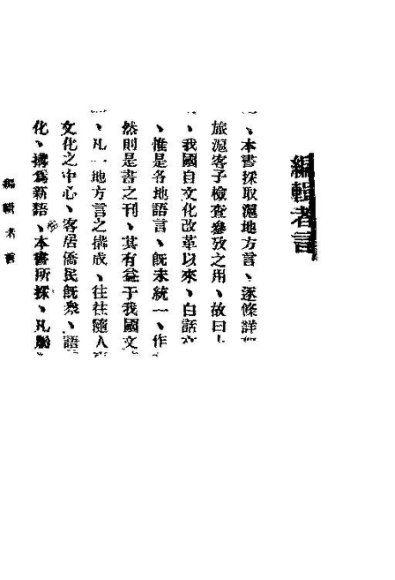 編輯者言
、本書採取滬地方言、逐條詳
旅滬客子檢查參攷之用、故曰
、我國自文化改革以來、白話
、惟是各地語言、既未統一、作
然則是書之刊、其有益于我國文
、凡一地方言之搆成、往往隨人
文化之中心、客居僑民既衆、語
化、搆爲新語、本書所採、凡
編輯者言